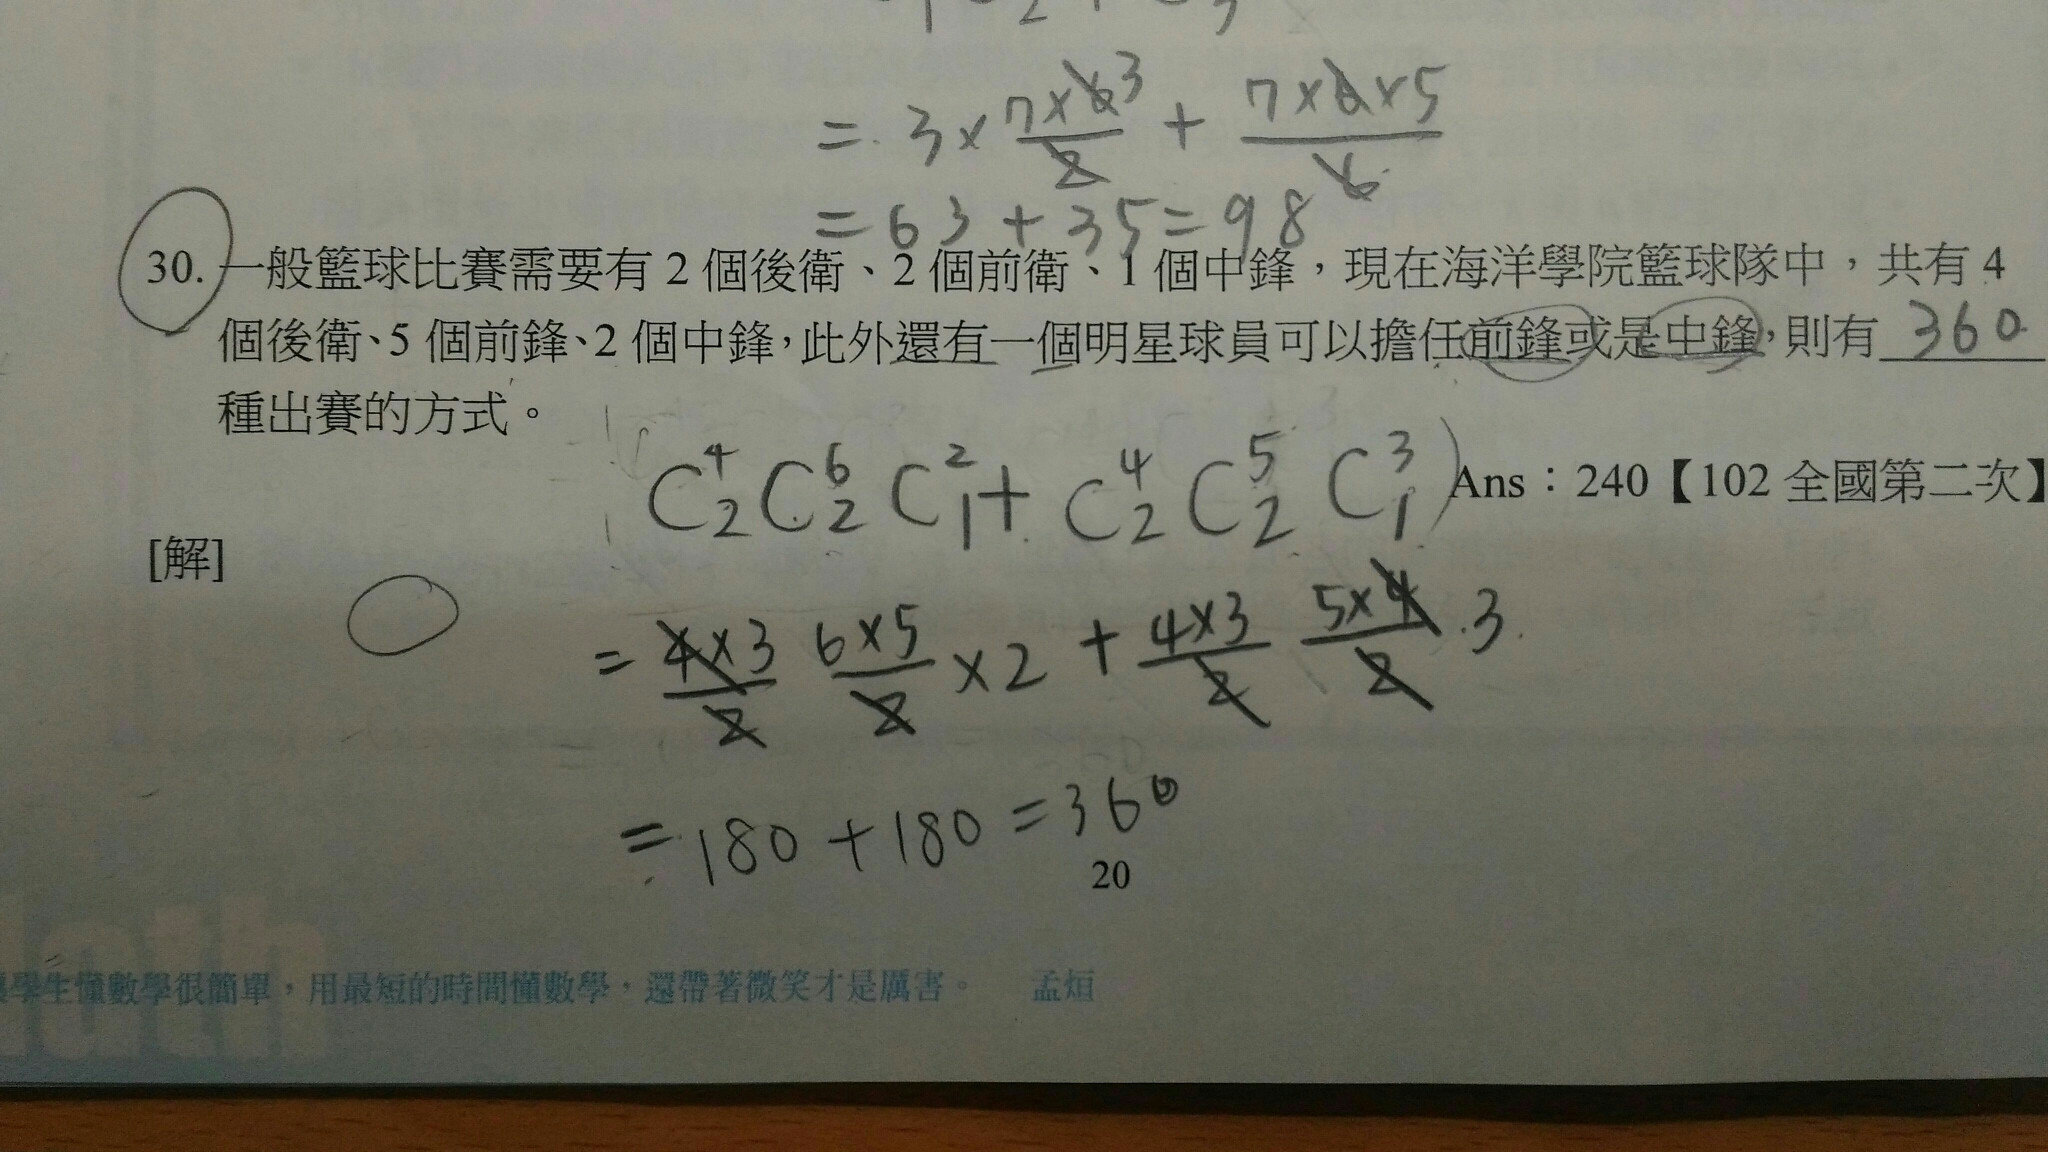 = 3 × 7×6 3 / 2 + 7×6×5 / 6
= 63 + 35 = 98
30. 一般籃球比賽需要有 2 個後衛、2 個前衛、1 個中鋒，現在海洋學院籃球隊中，共有 4
個後衛、5 個前鋒、2 個中鋒，此外還有一個明星球員可以擔任前鋒或是中鋒，則有 360
種出賽的方式。
C⁴₂ C⁶₂ C²₁ + C⁴₂ C⁵₂ C³₁
Ans：240【102 全國第二次】
[解]
= 4×3/2 6×5/2 ×2 + 4×3/2 5×4/2 .3.
= 180 + 180 = 360
20
學生懂數學很簡單，用最短的時間懂數學，還帶著微笑才是厲害。 孟烜